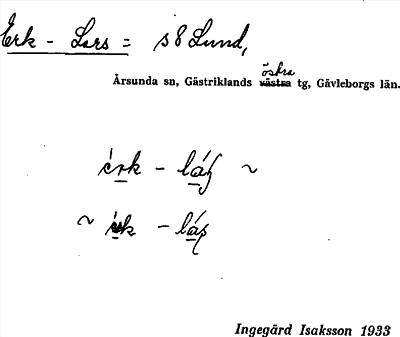 Erk - Lars = s 8 Lund,
östra
Årsunda sn, Gästriklands västra tg, Gävleborgs län.
érk - láş ~
~ - láş
Ingegärd Isaksson 1933